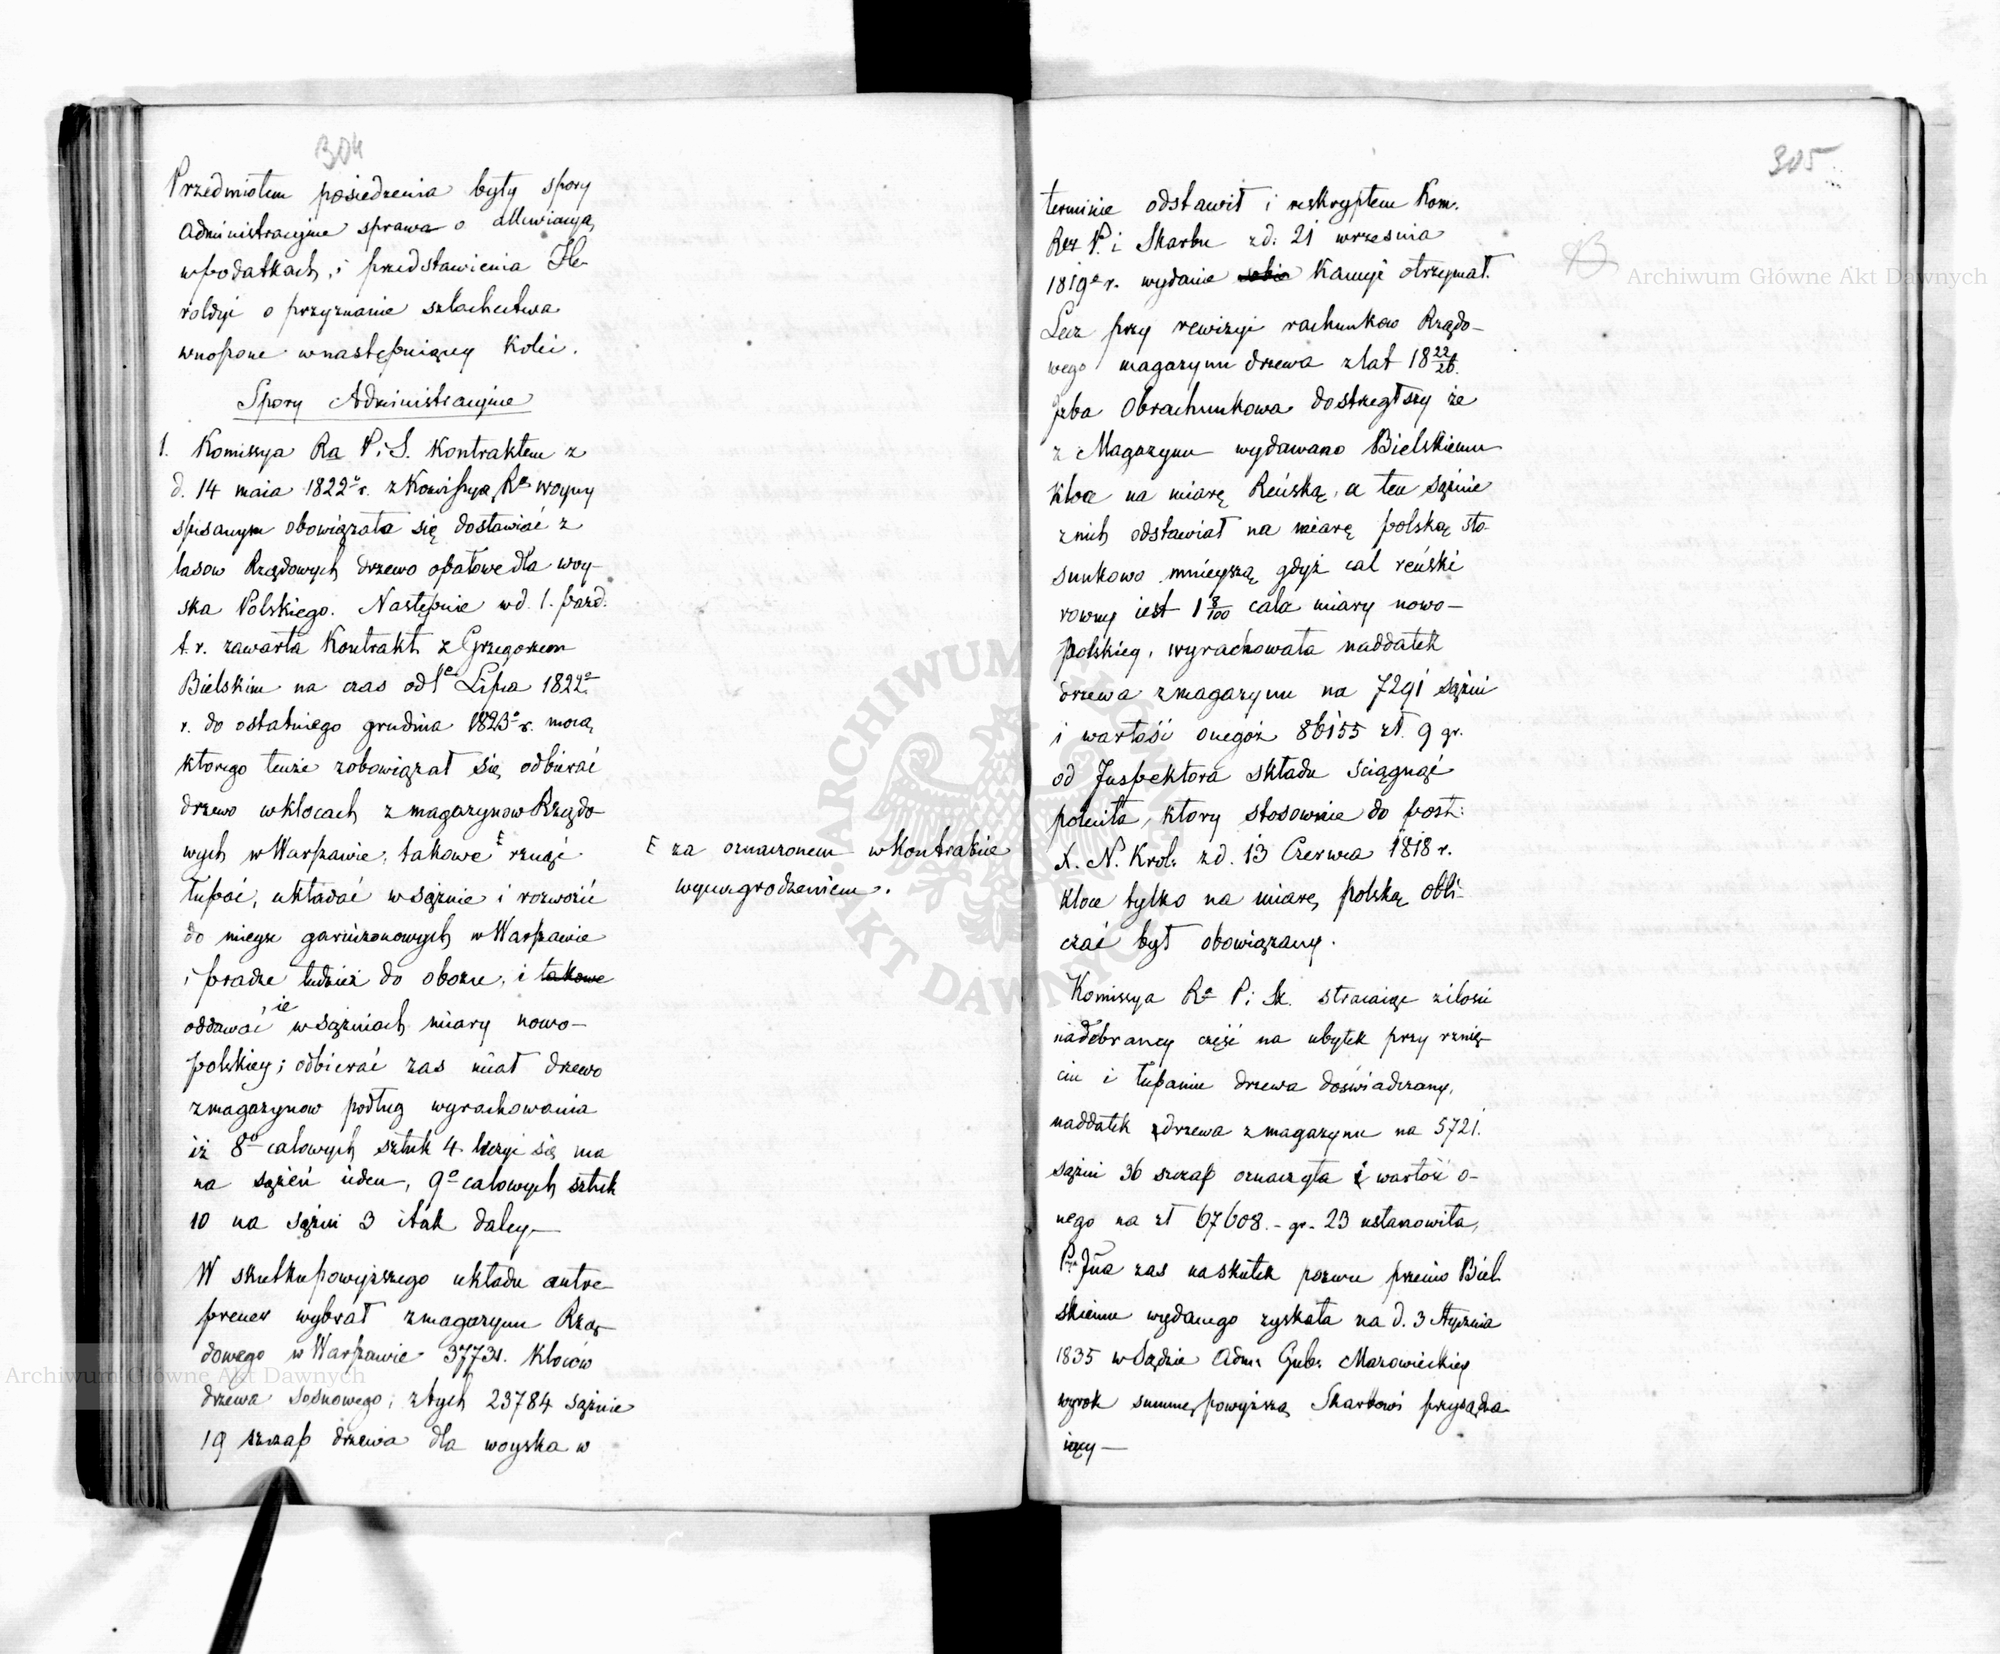 304
Przedmiotem posiedzenia były spory
administracyjne sprawa o
w podatkach, i przedstawienia He-
roldyi o przyznanie szlachectwa
wnoszone w następuiącey kolei.
Spory Administracyjne
1. Komissya Ra P. i S. kontraktem z
d. 14 maia 1822 r. z Komissyą Ra woyny
spisanym obowiązała się dostawiać z
lasow Rządowych drzewo opałowe dla woy-
ska Polskiego. Następnie w d. 1. pazd.
t. r. zawarła Kontrakt z Grzegorzem
Bielskim na czas od 1o Lipca 1822o
r. do ostatniego grudnia 1823o r. mocą
ktorego tenże zobowiązał się odbierać
drzewo w klocach z magazynow Rządo-
wych w Warszawie, takowe rznąć
łupać, układać w sążnie i rozwozić
do mieysc garnizonowych w Warszawie
i pradze tudzież do obozu, i takowe
ie
oddawać w sążniach miary nowo-
polskiey; odbierać zas miał drzewo
z magazynow podług wyrachowania
iż 8o calowych sztuk 4 liczyć się ma
na sążeń ieden, 9o calowych sztuk
10 na sążni 3 i tak daley
W skutku powyższego układu antre-
prener wybrał z magazynu Rzą-
dowego w Warszawie klocow
drzewa sosnowego; z tych 23784 sążnie
19 szczap drzewa dla woyska w
za oznaczonem w kontrakcie
wynagrodzeniem.
305
terminie odstawił i reskryptem Kom.
Rzz P. i Skarbu z d. 21 wrzesnia
1819o r. wydanie sobie Kaucyi otrzymał.
Lecz przy rewizyi rachunkow Rządo-
wego magazynu drzewa z lat 18 22/26.
Jzba Obrachunkowa dostrzegłszy że
z Magazynu wydawano Bielskiemu
kloce na miarę Reńską, a ten sążnie
z nich odstawiał na miarę polską sto-
sunkowo mnieyszą gdyż cal reński
rowny iest 1 8/100 cala miary nowo-
polskiey, wyrachowała naddatek
drzewa z magazynu na 7291 sążni
i wartość onegoż 86155 zł. 9 gr.
od Inspektora składu sciągnąć
poleciła, ktory stosownie do post:
X. N. Krol: z d. 13 Czerwca 1818 r.
kloce tylko na miarę polską obli-
czać był obowiązany.
Komissya Ra P. i Sk. strąciaiąc z ilosci
nadebraney część na ubytek przy rznię-
ciu i łupaniu drzewa doświadczany,
naddatek drzewa z magazynu na 5721.
sążni 36 szczap oznaczyła i wartość o-
nego na zł 67608.- gr. 23 ustanowiła,
zas na skutek pozwu przeciw Biel
skiemu wydanego zyskała na d. 3 Stycznia
1835 w Sądzie Adm: Gub: Mazowieckiey
wyrok summę powyższą Skarbowi przysądza
iący —
Archiwum Główne Akt Dawnych
Archiwum Główne Akt Dawnych
ARCHIWUM GŁÓWNE AKT DAWNYCH